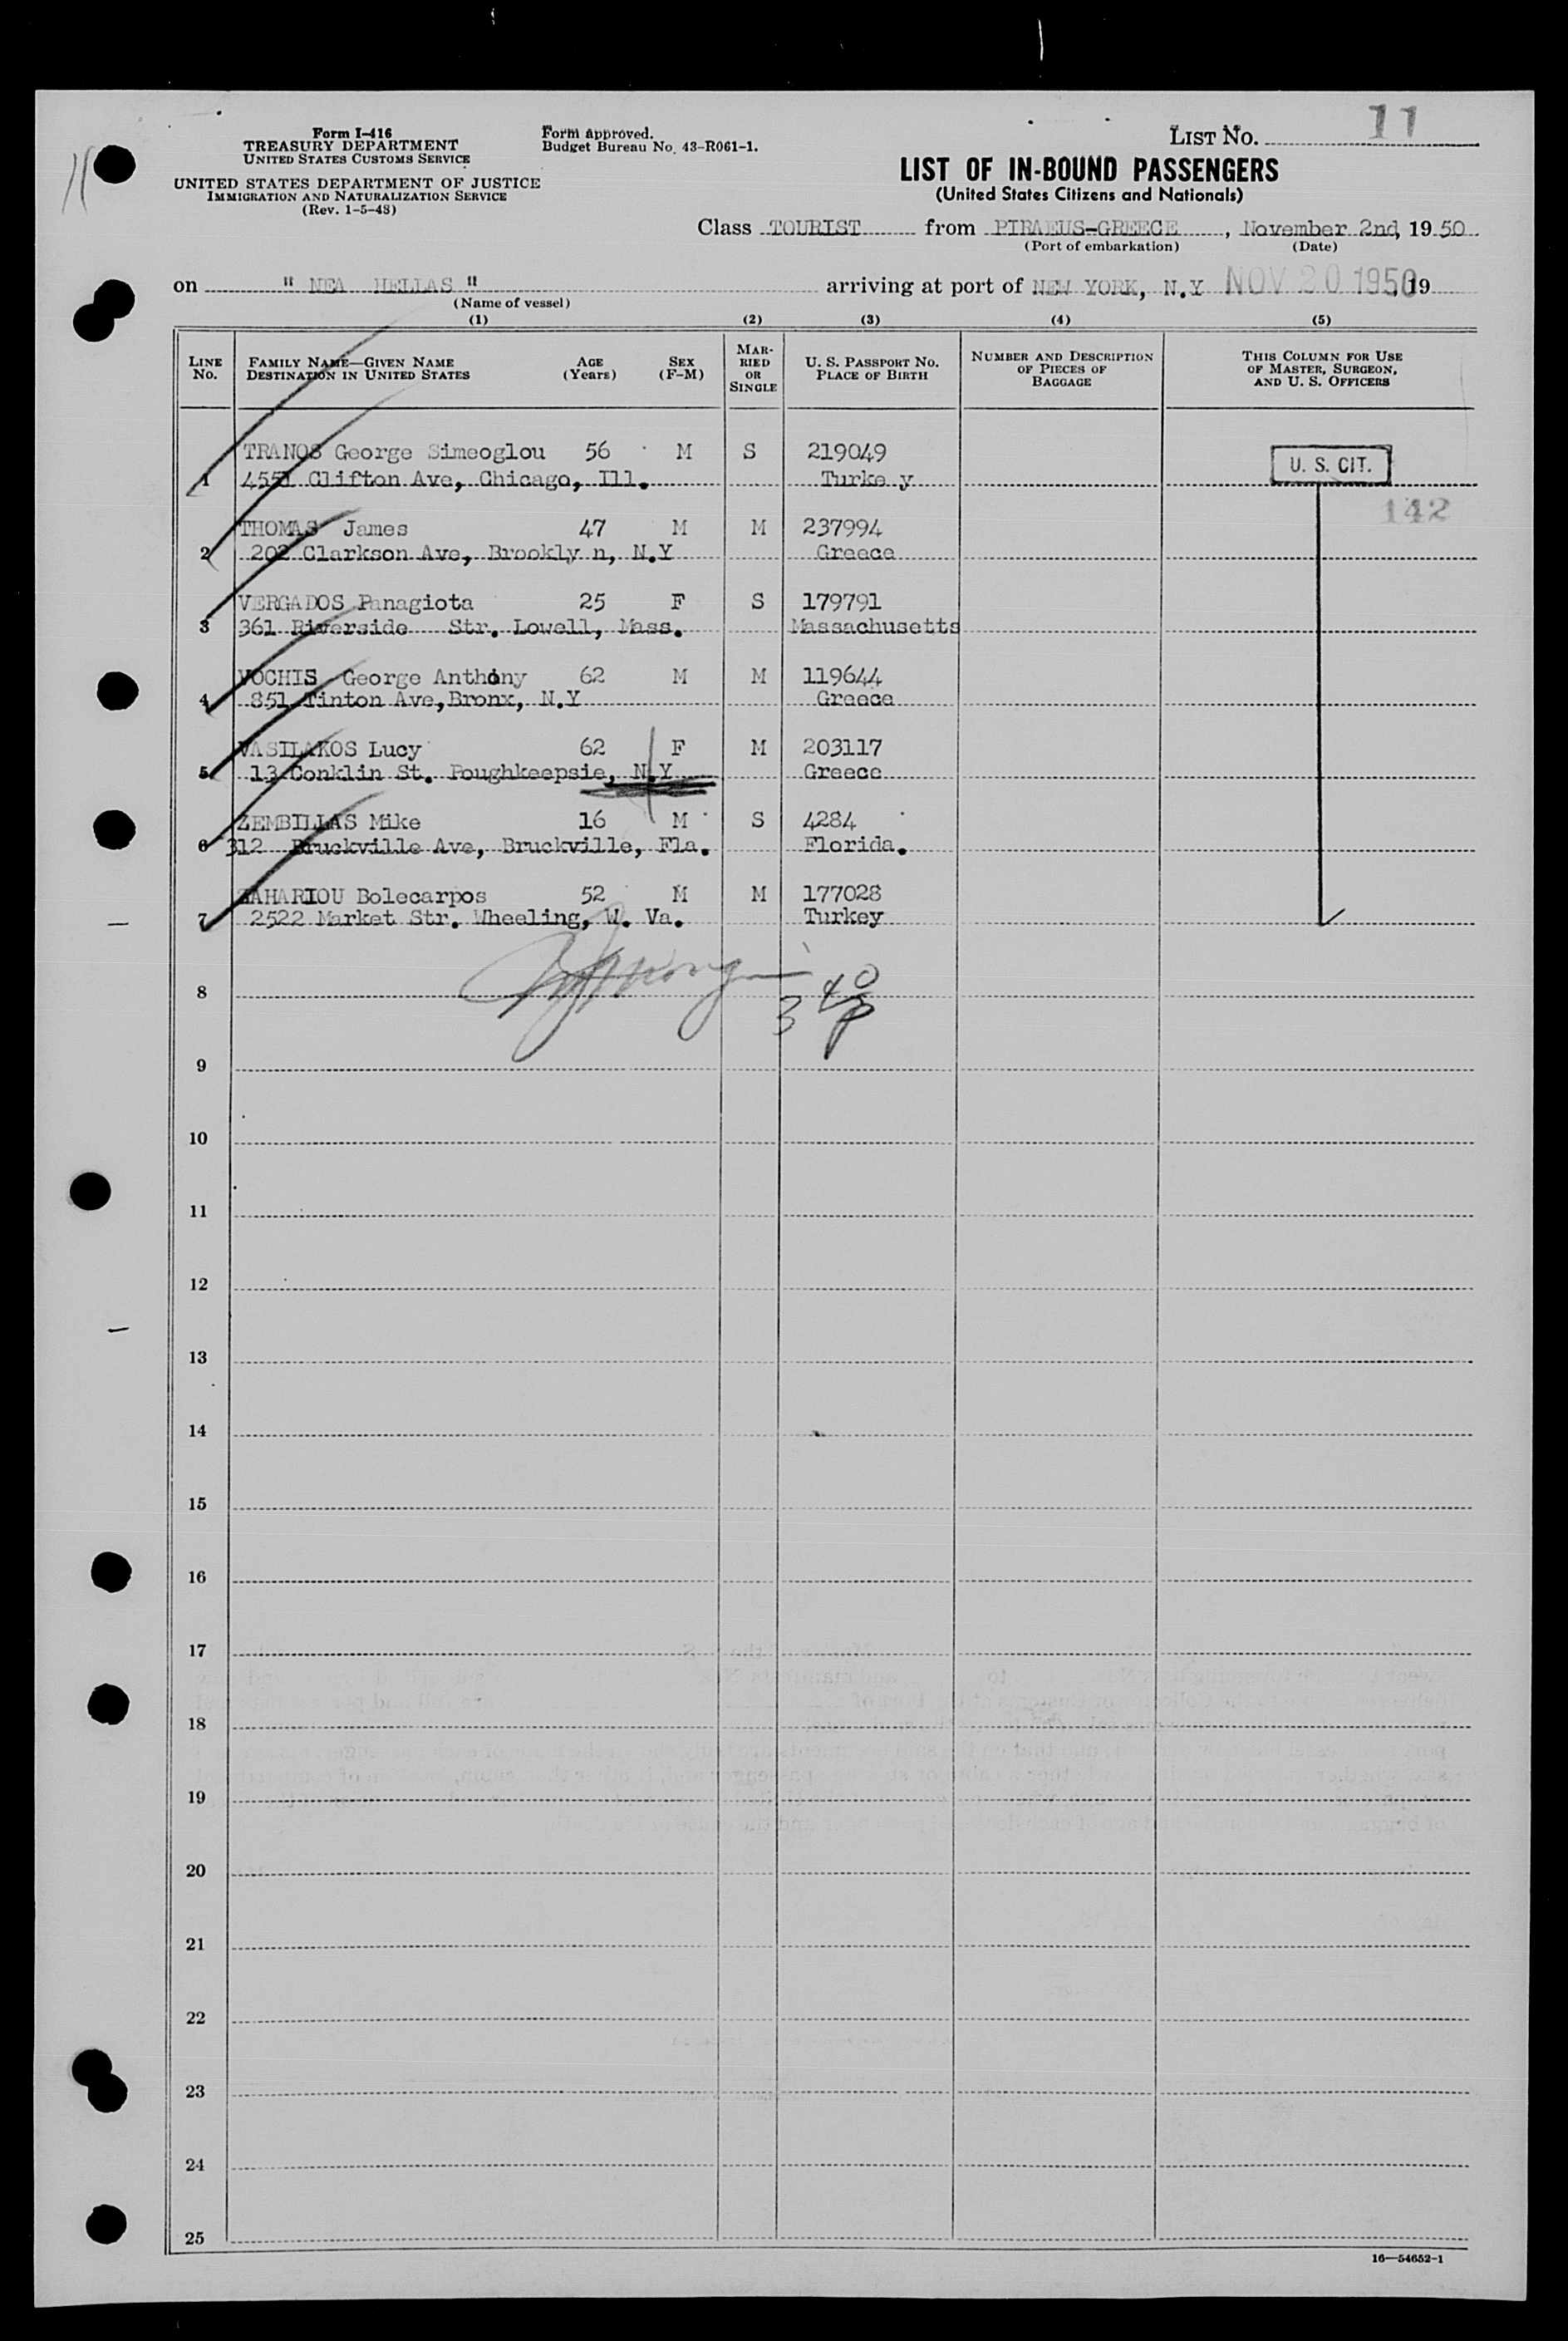 11
Form I-416
TREASURY DEPARTMENT
UNITED STATES CUSTOMS SERVICE
UNITED STATES DEPARTMENT OF JUSTICE
IMMIGRATION AND NATURALIZATION SERVICE
(Rev. 1-5-48)
Form approved.
Budget Bureau No. 43-R061-1.
LIST NO. 11
LIST OF IN-BOUND PASSENGERS
(United States Citizens and Nationals)
Class TOURIST from PIRAEUS-GREECE, November 2nd, 19 50
(Port of embarkation) (Date)
on " NEA HELLAS " arriving at port of NEW YORK, N.Y NOV 20 1950, 19
(Name of vessel)
(1) (2) (3) (4) (5)
LINE NO. FAMILY NAME—GIVEN NAME DESTINATION IN UNITED STATES AGE (Years) SEX (F-M) MARRIED OR SINGLE U. S. PASSPORT NO. PLACE OF BIRTH NUMBER AND DESCRIPTION OF PIECES OF BAGGAGE THIS COLUMN FOR USE OF MASTER, SURGEON, AND U. S. OFFICERS
TRANOS George Simeoglou 56 M S 219049 U. S. CIT.
1 4551 Clifton Ave, Chicago, Ill. Turke y
142
THOMAS James 47 M M 237994
2 202 Clarkson Ave, Brookly n, N.Y Greece
VERGADOS Panagiota 25 F S 179791
3 361 Riverside Str. Lowell, Mass. Massachusetts
VOCHIS George Anthony 62 M M 119644
4 851 Tinton Ave, Bronx, N.Y Greece
VASILAKOS Lucy 62 F M 203117
5 13 Conklin St. Poughkeepsie, N.Y Greece
ZEMBILLAS Mike 16 M S 4284
6 312 Bruckville Ave, Bruckville, Fla. Florida.
ZAHARIOU Bolecarpos 52 M M 177028
7 2522 Market Str. Wheeling, W. Va. Turkey
8
3 40 p
9
10
11
12
13
14
15
16
17
18
19
20
21
22
23
24
25
16—54652-1